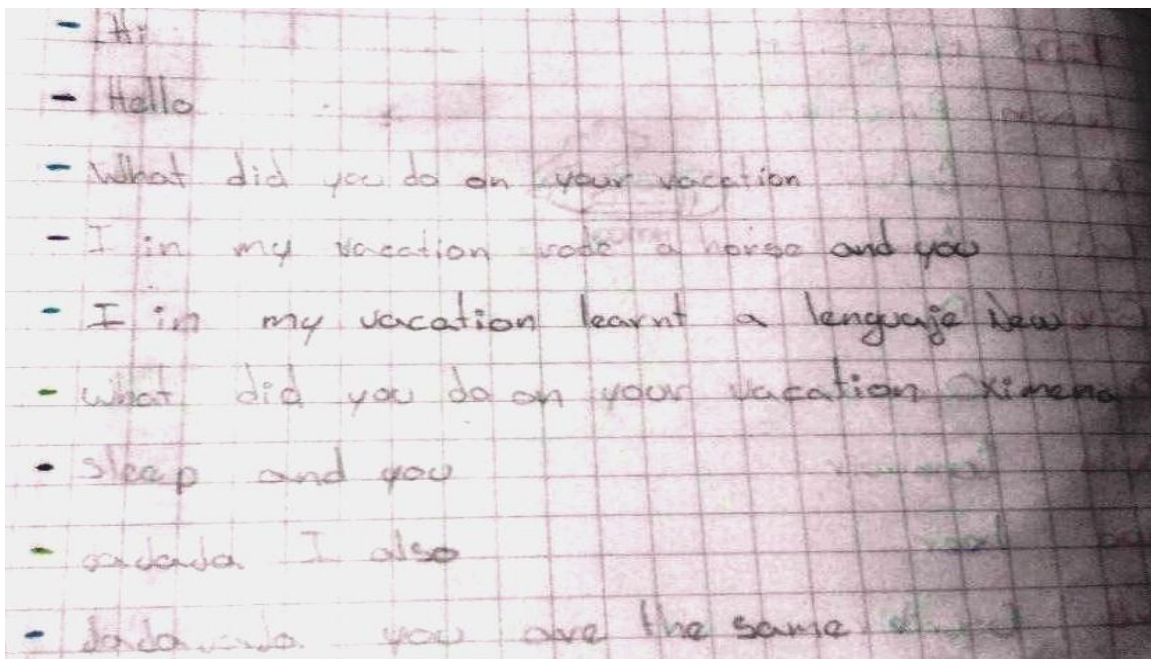 - Hi
- Hello
- What did you do on your vacation
- I in my vacation rode a horse and you
- I in my vacation learnt a lenguaje New
- what did you do on your vacation Ximena
- sleep and you
- I also
- you are the same